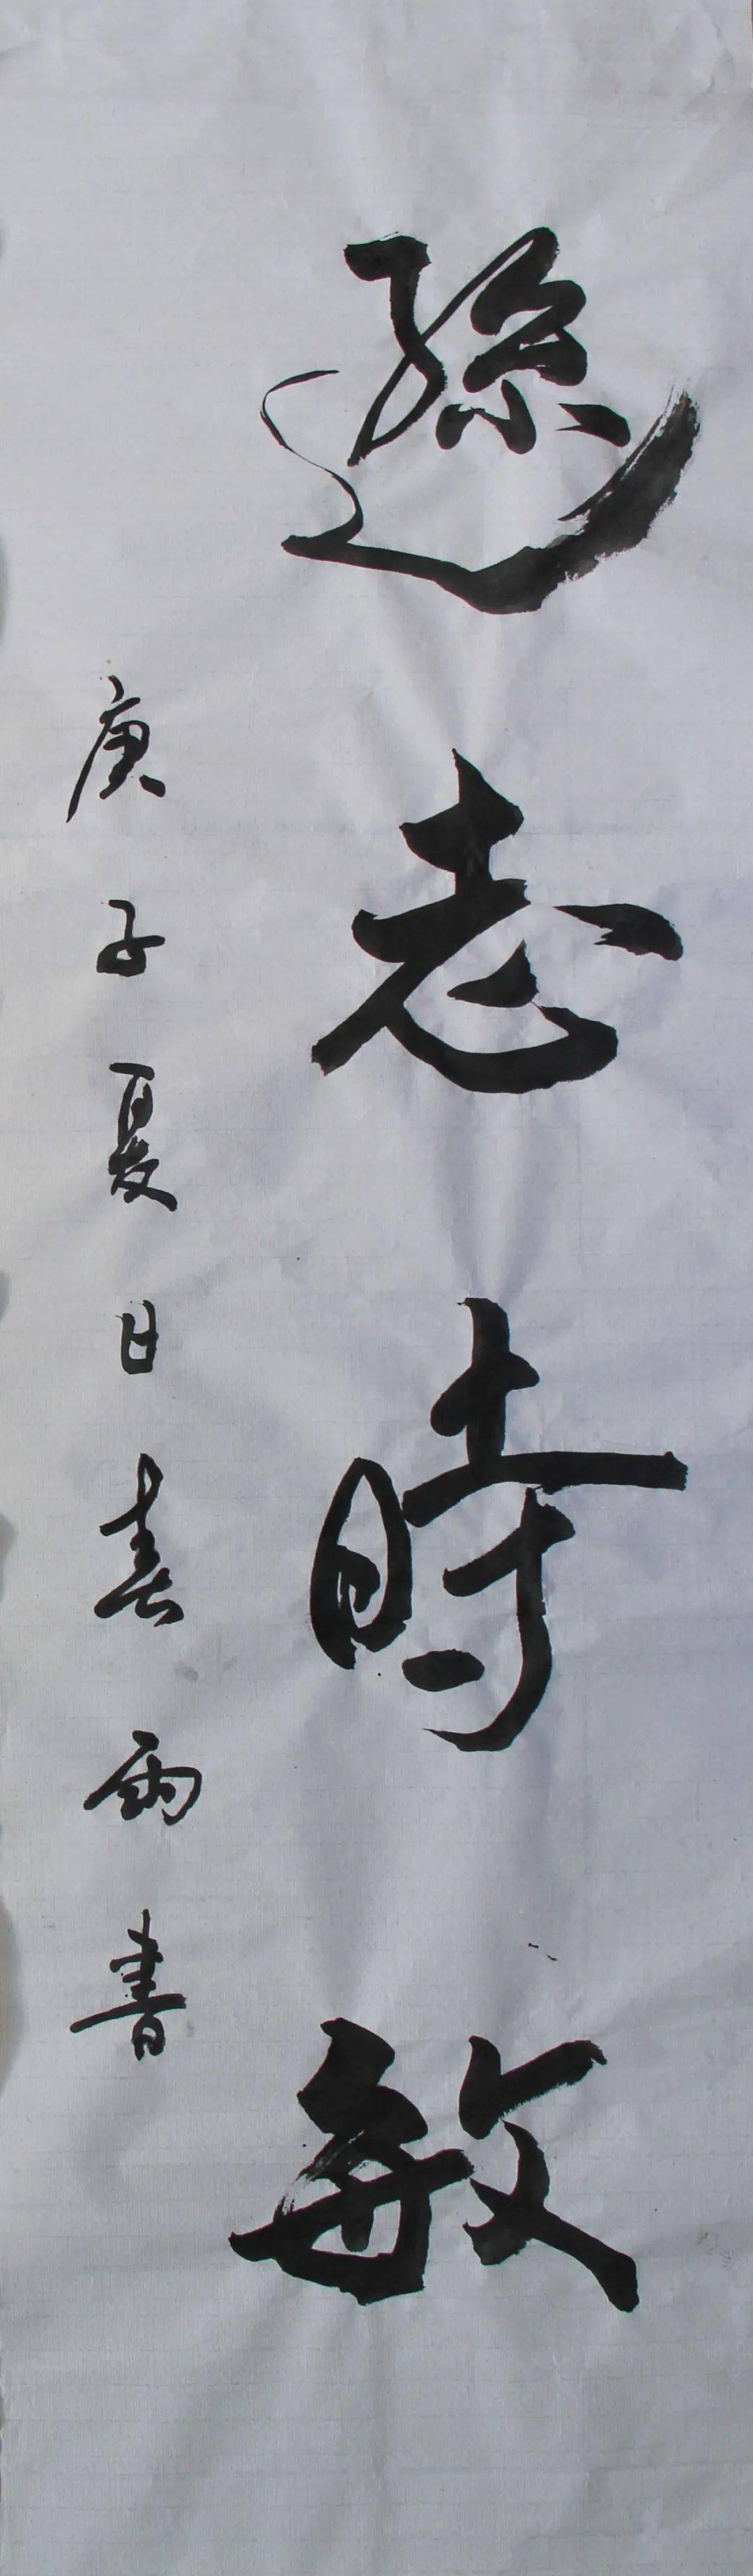 遜志時敏
庚子夏日春雨書